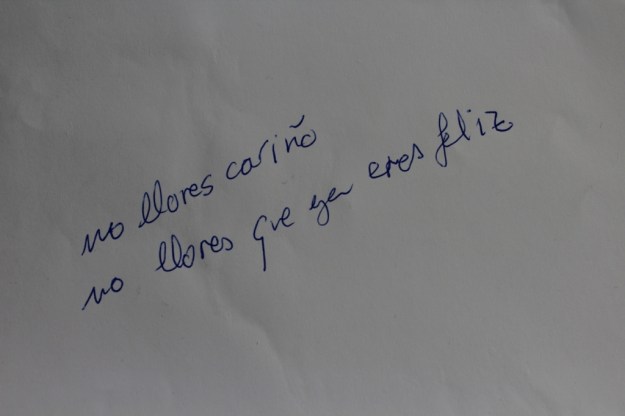 no llores cariño
no llores que ya eres feliz